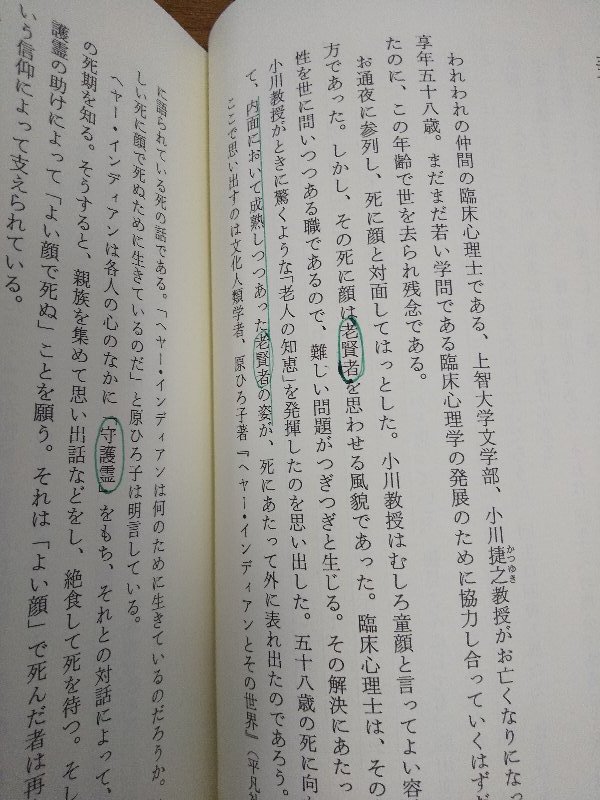 われわれの仲間の臨床心理士である、上智大学文学部、小川捷之教授がお亡くなりになっ
かつゆき
享年五十八歳。まだまだ若い学問である臨床心理学の発展のために協力し合っていくはず
たのに、この年齢で世を去られ残念である。
お通夜に参列し、死に顔と対面してはっとした。小川教授はむしろ童顔と言ってよい容
方であった。しかし、その死に顔は老賢者を思わせる風貌であった。臨床心理士は、その
性を世に問いつつある職であるので、難しい問題がつぎつぎと生じる。その解決にあたっ
小川教授がときに驚くような「老人の知恵」を発揮したのを思い出した。五十八歳の死に向
て、内面において成熟しつつあった老賢者の姿が、死にあたって外に表れ出たのであろう。
ここで思い出すのは文化人類学者、原ひろ子著『ヘヤー・インディアンとその世界』(平凡
に語られている死の話である。「ヘヤー・インディアンは何のために生きているのだろうか。
しい死に顔で死ぬために生きているのだ」と原ひろ子は明言している。
ヘヤー・インディアンは各人の心のなかに「守護霊」をもち、それとの対話によって、
の死期を知る。そうすると、親族を集めて思い出話などをし、絶食して死を待つ。そし
護霊の助けによって「よい顔で死ぬ」ことを願う。それは「よい顔」で死んだ者は再
いう信仰によって支えられている。